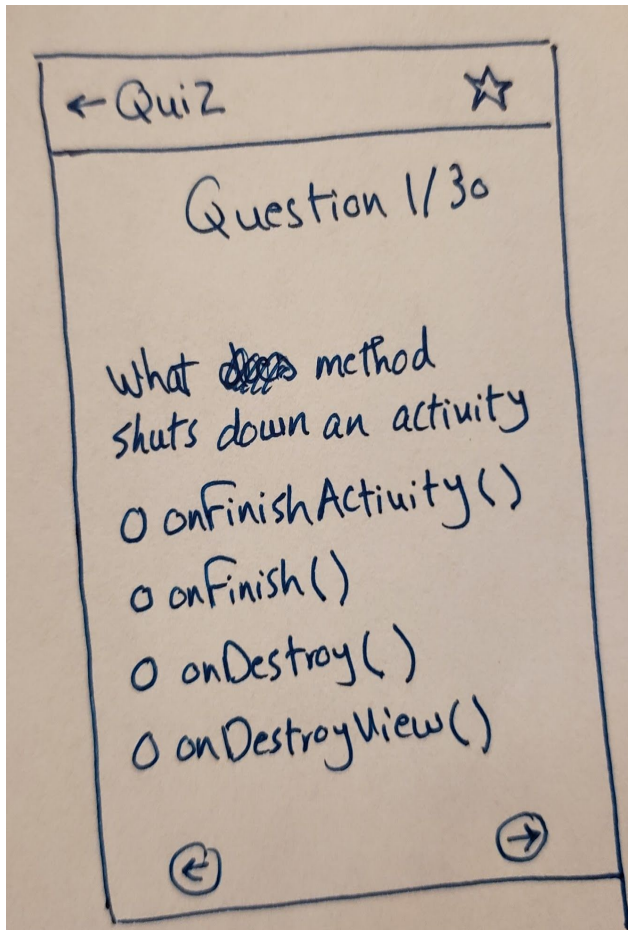 ← Quiz ☆
Question 1/30
What method
shuts down an activity
O onFinishActivity()
O onFinish()
O onDestroy()
O onDestroyView()
← →